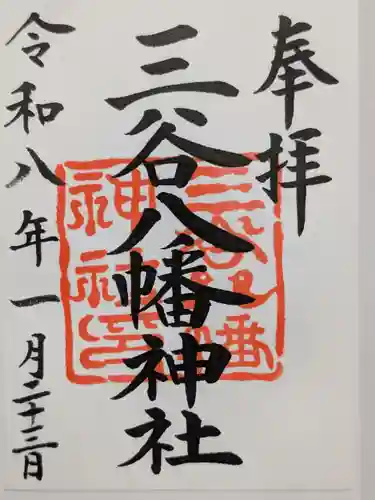 奉拝
三谷八幡神社
令和八年一月二十三日